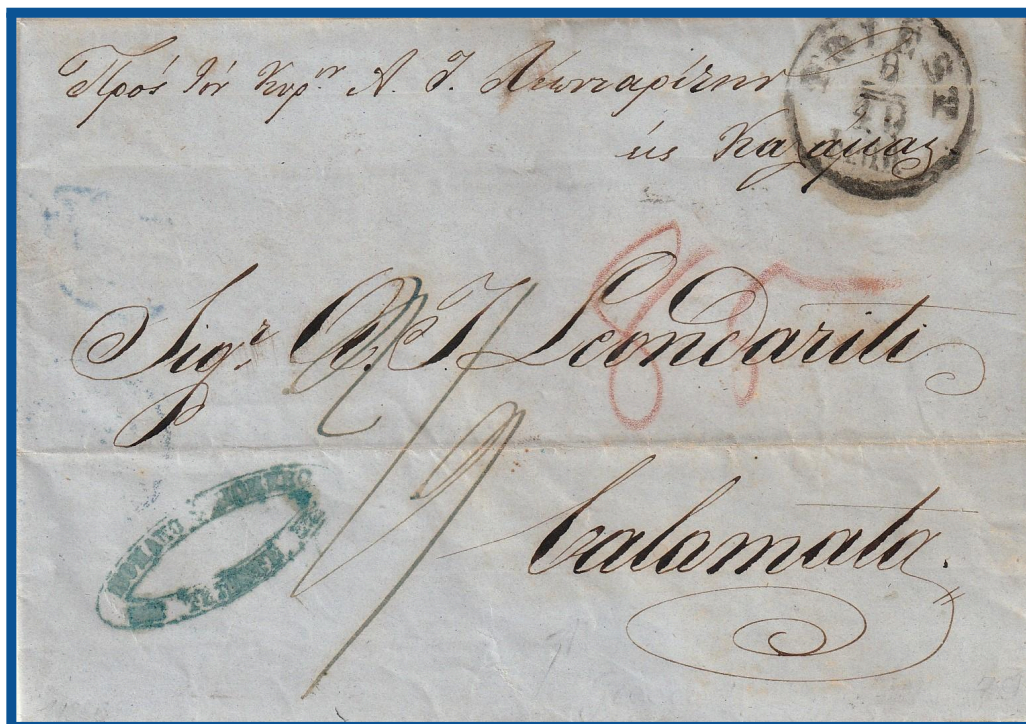 Πρός τόν Κυρ.ον Α. Ι. Λεονταρίτην
εἰς Καλάμας
TRIEST
8
Sigr. A. I. Leondariti
85
Calamata.